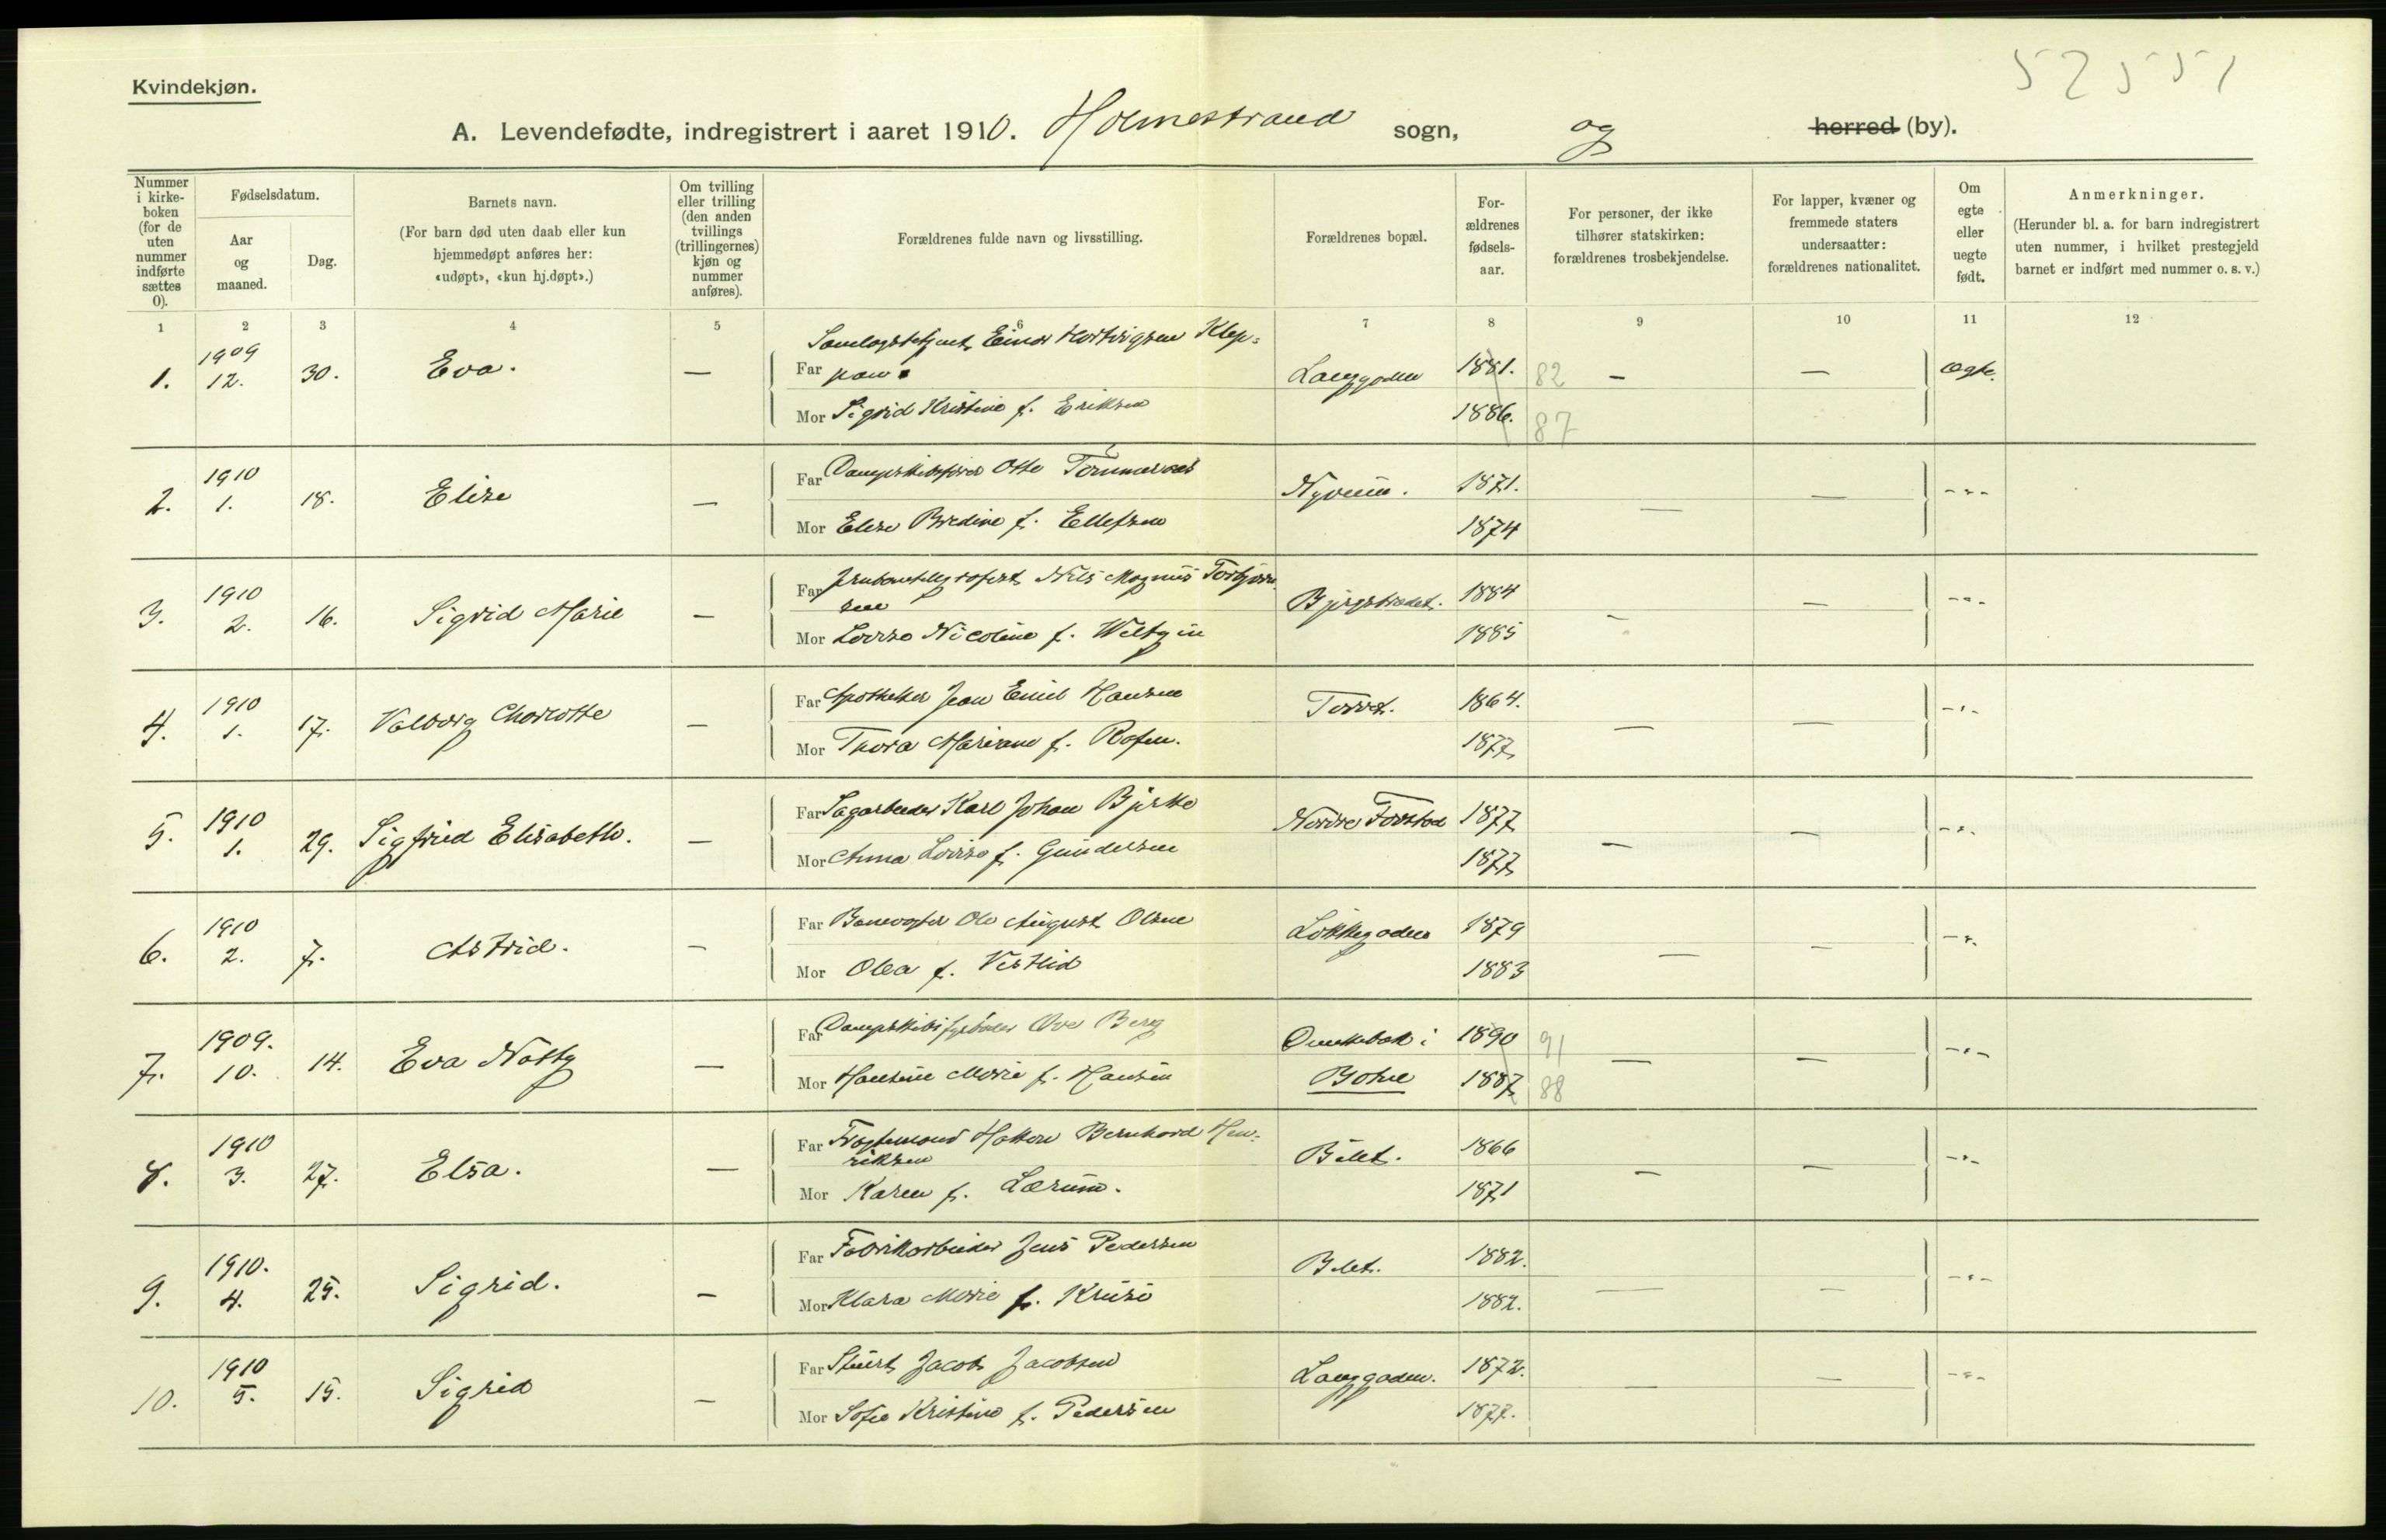 52551
Kvindekjøn.
A. Levendefødte, indregistrert i aaret 1910. Holmestrand sogn, og herred (by).
Nummer i kirke-boken (for de uten nummer indførte sættes 0).
Fødselsdatum.
Aar og maaned.
Dag.
Barnets navn.
(For barn død uten daab eller kun hjemmedøpt anføres her: «udøpt», «kun hj.døpt».)
Om tvilling eller trilling (den anden tvillings (trillingernes) kjøn og nummer anføres).
Forældrenes fulde navn og livsstilling.
Forældrenes bopæl.
For-ældrenes fødsels-aar.
For personer, der ikke tilhører statskirken: forældrenes trosbekjendelse.
For lapper, kvæner og fremmede staters undersaatter: forældrenes nationalitet.
Om egte eller uegte født.
Anmerkninger.
(Herunder bl. a. for barn indregistrert uten nummer, i hvilket prestegjeld barnet er indført med nummer o. s. v.)
1 2 3 4 5 6 7 8 9 10 11 12
1. 1909 12. 30. Eva. —
Far Einar Hartvigsen Klep=
pan Langgaden 1881. 82 — — Ægte.
Mor Sigrid Kristine f. Eriksen 1886. 87
2. 1910 1. 18. Elise —
Far Dampskibsfører Otto Tømmeraas Nyveien. 1871. — — -"-
Mor Elise Bredine f. Ellefsen 1874
3. 1910 2. 16. Sigrid Marie —
Far Jernbanetelegrafist Nils Magnus Torbjørn-
sen 1884 — — -"-
Mor Lovise Nicoline f. 1885
4. 1910 1. 17. Valborg Charlotte —
Far Apotheker Jean Emil Hansen Torvet. 1864. — — -"-
Mor Thora Mariane f. 1877
5. 1910 1. 29. Sigfried Elisabeth. —
Far Sagarbeider Karl Johan Bjerke Nordre Forstad 1877 — — -"-
Mor Anna Lovise f. Gundersen 1877
6. 1910 2. 7. Astrid. —
Far Banevogter Ole August Olsen Løkkegaden 1879 — — -"-
Mor Olea f. Vestlid 1883
7. 1909. 10. 14. Eva Notty —
Far Dampskibsfyrbøder Ove Berg i 1890 91 — — -"-
Mor Hansine Marie f. Hansen Botne 1887 88
8. 1910 3. 27. Elsa. —
Far Fragtemand Hakon Bernhard Hen-
riksen 1866 — — -"-
Mor Karen f. Lærum. 1871
9. 1910. 4. 25. Sigrid. —
Far Fabrikarbeider Jens Pedersen 1882. — — -"-
Mor Klara Marie f. Kruse 1882.
10. 1910 5. 15. Sigrid —
Far Stuert Jacob Jacobsen Langgaden. 1872. — — -"-
Mor Sofie Kristine f. Pedersen 1877.